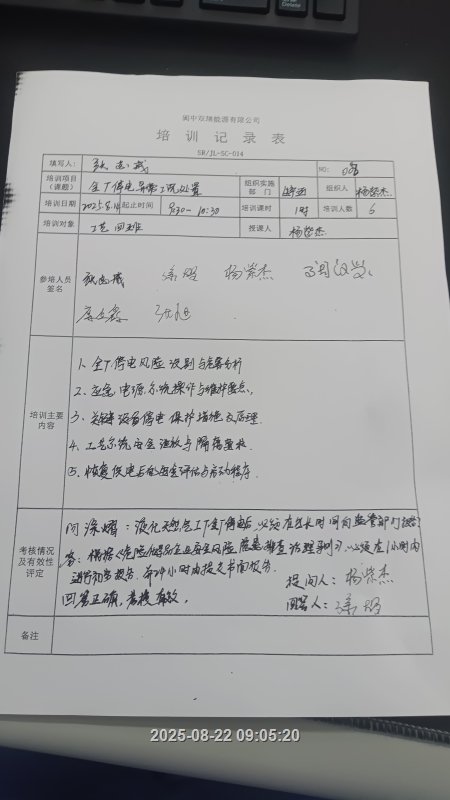 阆中双瑞能源有限公司
培训记录表
SR/JL-SC-014
填写人: NO:
培训项目(课题) 全厂停电异常工况处置 组织实施部门 组织人 杨崇杰
培训日期 2025.8.14 起止时间 9:30-10:30 培训课时 1时 培训人数 6
培训对象 工艺四班 授课人 杨崇杰
参培人员签名 杨崇杰
培训主要内容
1、全厂停电风险识别与危害分析
2、应急电源系统操作与维护要点
3、关键设备停电保护措施及原理
4、工艺系统安全泄放与隔离要求
5、恢复供电后的安全评估与启动程序
考核情况及有效性评定
问涂熠:液化天然气工厂全厂停电后,必须在多长时间向监管部门报告?
答:根据《危险化学品企业安全风险隐患排查治理导则》,必须在1小时内
进行初步报告,并24小时内提交书面报告。
提问人:杨崇杰
回答正确,考核有效。
回答人:涂熠
备注
2025-08-22 09:05:20